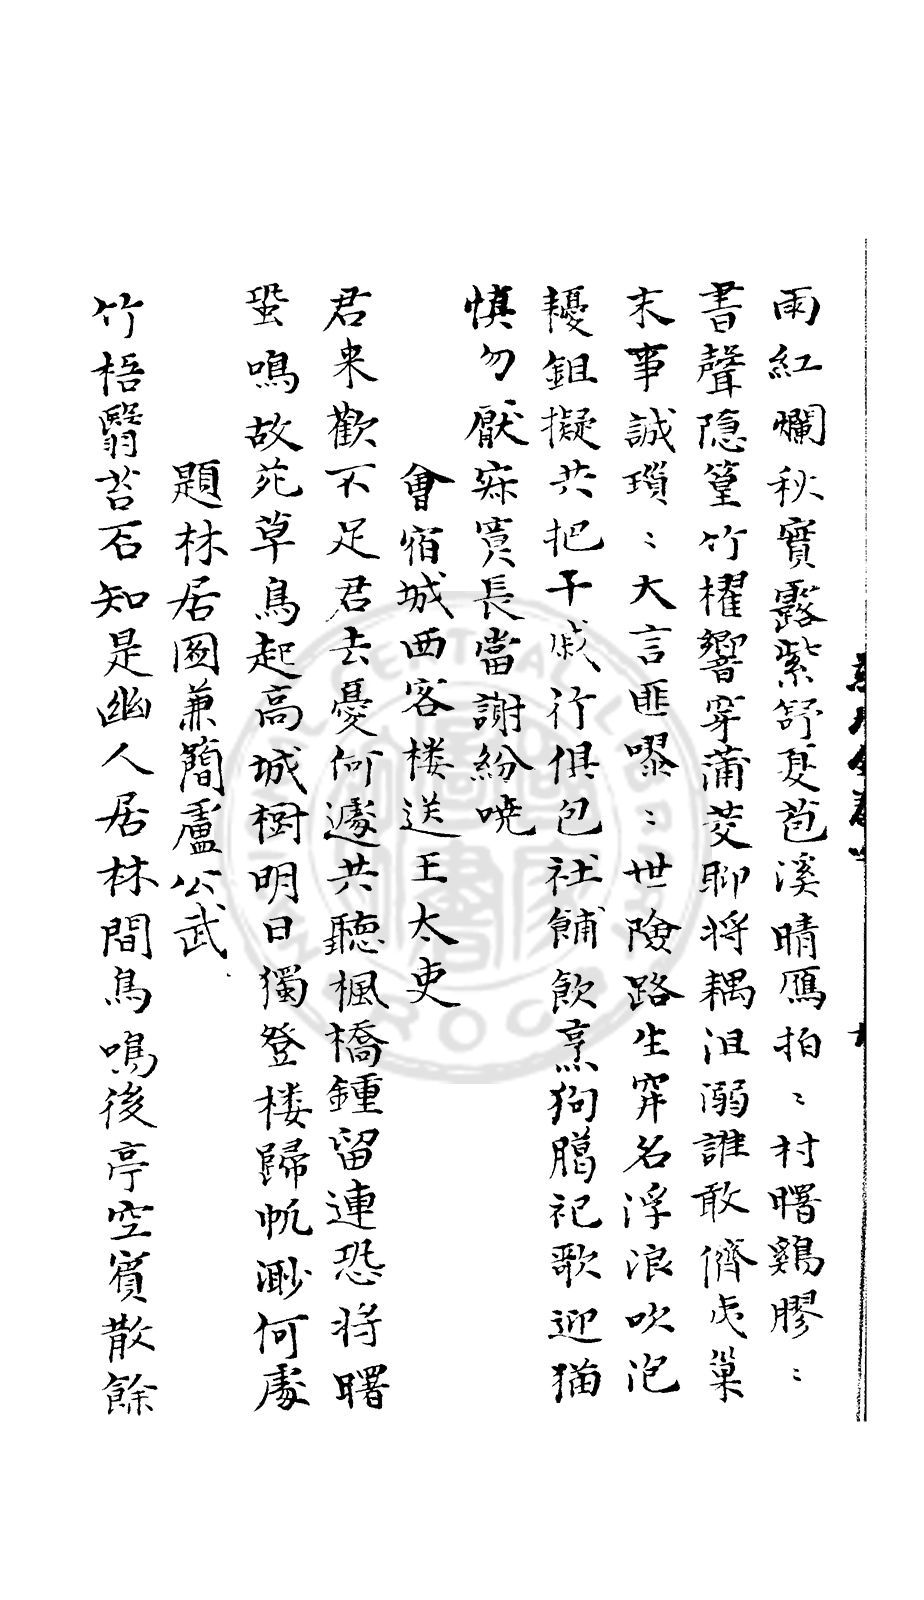 雨紅爛秋實露紫舒夏苞溪晴鴈拍〻村曙鷄膠〻
書聲隐篁竹櫂響穿蒲茭聊将耦沮溺誰敢儕戍巢
末事誠瑣〻大言匪嘐〻世險路生穽名浮浪吹泡
耰鉏擬共把干戚行俱包社餔飲烹狗臈祀歌迎猫
慎勿厭寂寞長當謝紛哓
會宿城西客楼送王太吏
君来歡不足君去憂何遽共聽楓橋鍾留連恐将曙
蛩鳴故苑草鳥起高城樹明日獨登楼歸帆渺何處
題林居圖兼簡盧公武
竹梧翳苔石知是幽人居林間鳥鳴後亭空賓散餘